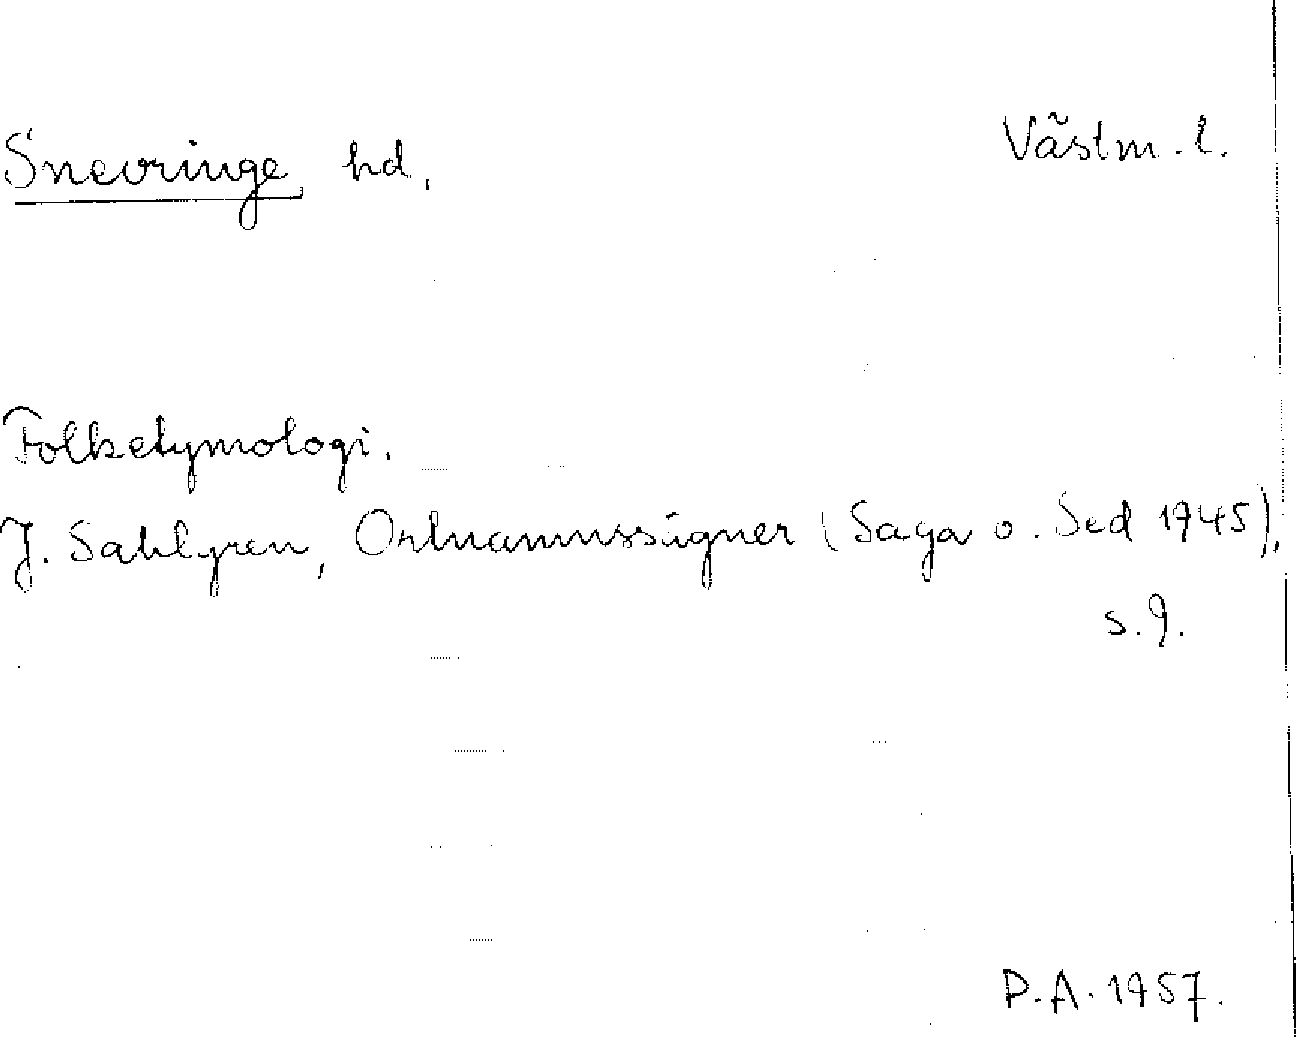 Snevringe hd.
Västm. l.
Folketymologi.
J. Sahlgren, Ortnamnssägner (Saga o. Sed 1945),
s. 9.
P.A. 1957.